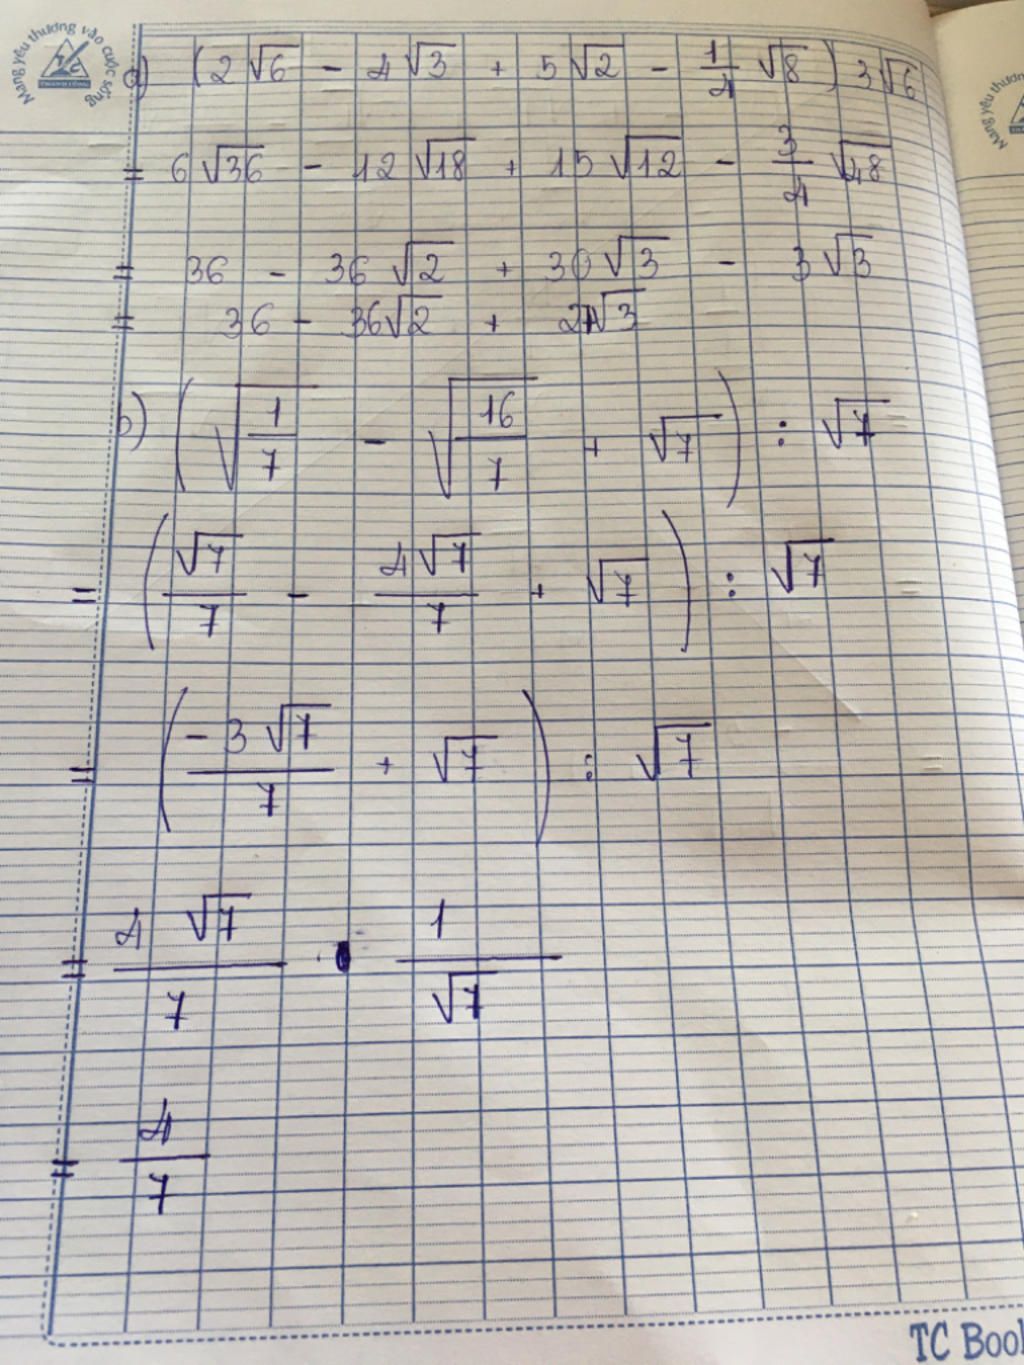 Mang yêu thương vào cuộc sống
a) (2√6 - 4√3 + 5√2 - 1/4 √8) 3√6
= 6√36 - 12√18 + 15√12 - 3/4 √48
= 36 - 36√2 + 30√3 - 3√3
= 36 - 36√2 + 27√3
b) (√(1/7) - √(16/7) + √7) : √7
= (√7/7 - 4√7/7 + √7) : √7
= (-3√7/7 + √7) : √7
= 4√7/7 · 1/√7
= 4/7
TC Book